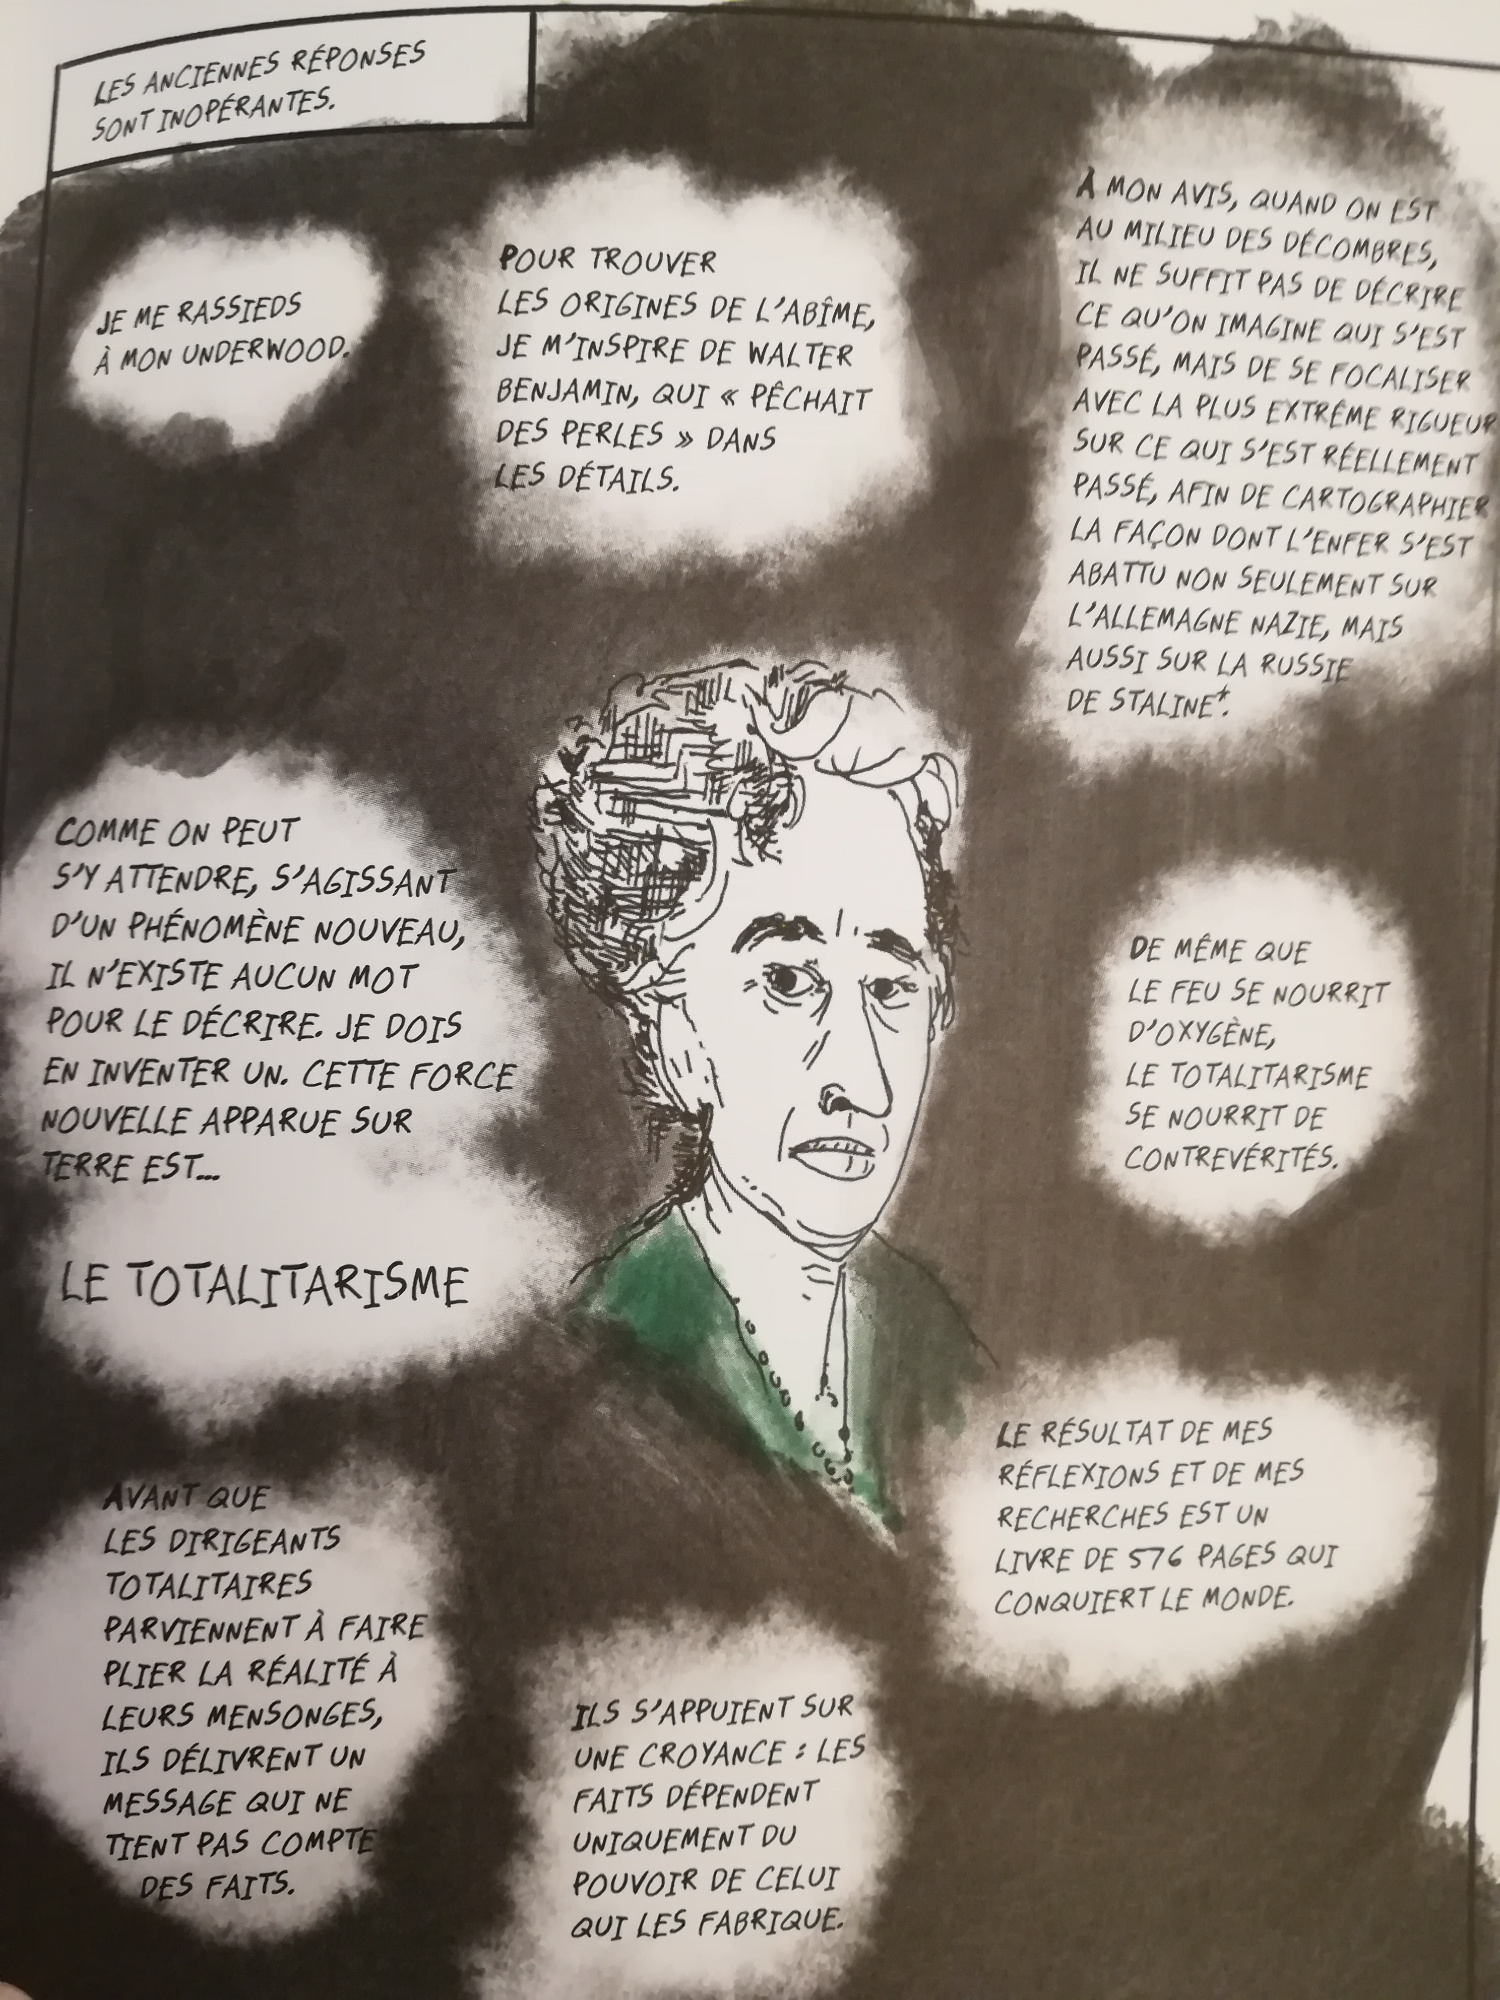 LES ANCIENNES RÉPONSES
SONT INOPÉRANTES.
JE ME RASSIEDS
À MON UNDERWOOD.
POUR TROUVER
LES ORIGINES DE L'ABÎME,
JE M'INSPIRE DE WALTER
BENJAMIN, QUI « PÊCHAIT
DES PERLES » DANS
LES DÉTAILS.
À MON AVIS, QUAND ON EST
AU MILIEU DES DÉCOMBRES,
IL NE SUFFIT PAS DE DÉCRIRE
CE QU'ON IMAGINE QUI S'EST
PASSÉ, MAIS DE SE FOCALISER
AVEC LA PLUS EXTRÊME RIGUEUR
SUR CE QUI S'EST RÉELLEMENT
PASSÉ, AFIN DE CARTOGRAPHIER
LA FAÇON DONT L'ENFER S'EST
ABATTU NON SEULEMENT SUR
L'ALLEMAGNE NAZIE, MAIS
AUSSI SUR LA RUSSIE
DE STALINE*.
COMME ON PEUT
S'Y ATTENDRE, S'AGISSANT
D'UN PHÉNOMÈNE NOUVEAU,
IL N'EXISTE AUCUN MOT
POUR LE DÉCRIRE. JE DOIS
EN INVENTER UN. CETTE FORCE
NOUVELLE APPARUE SUR
TERRE EST...
LE TOTALITARISME
DE MÊME QUE
LE FEU SE NOURRIT
D'OXYGÈNE,
LE TOTALITARISME
SE NOURRIT DE
CONTREVÉRITÉS.
AVANT QUE
LES DIRIGEANTS
TOTALITAIRES
PARVIENNENT À FAIRE
PLIER LA RÉALITÉ À
LEURS MENSONGES,
ILS DÉLIVRENT UN
MESSAGE QUI NE
TIENT PAS COMPTE
DES FAITS.
ILS S'APPUIENT SUR
UNE CROYANCE : LES
FAITS DÉPENDENT
UNIQUEMENT DU
POUVOIR DE CELUI
QUI LES FABRIQUE.
LE RÉSULTAT DE MES
RÉFLEXIONS ET DE MES
RECHERCHES EST UN
LIVRE DE 576 PAGES QUI
CONQUIERT LE MONDE.